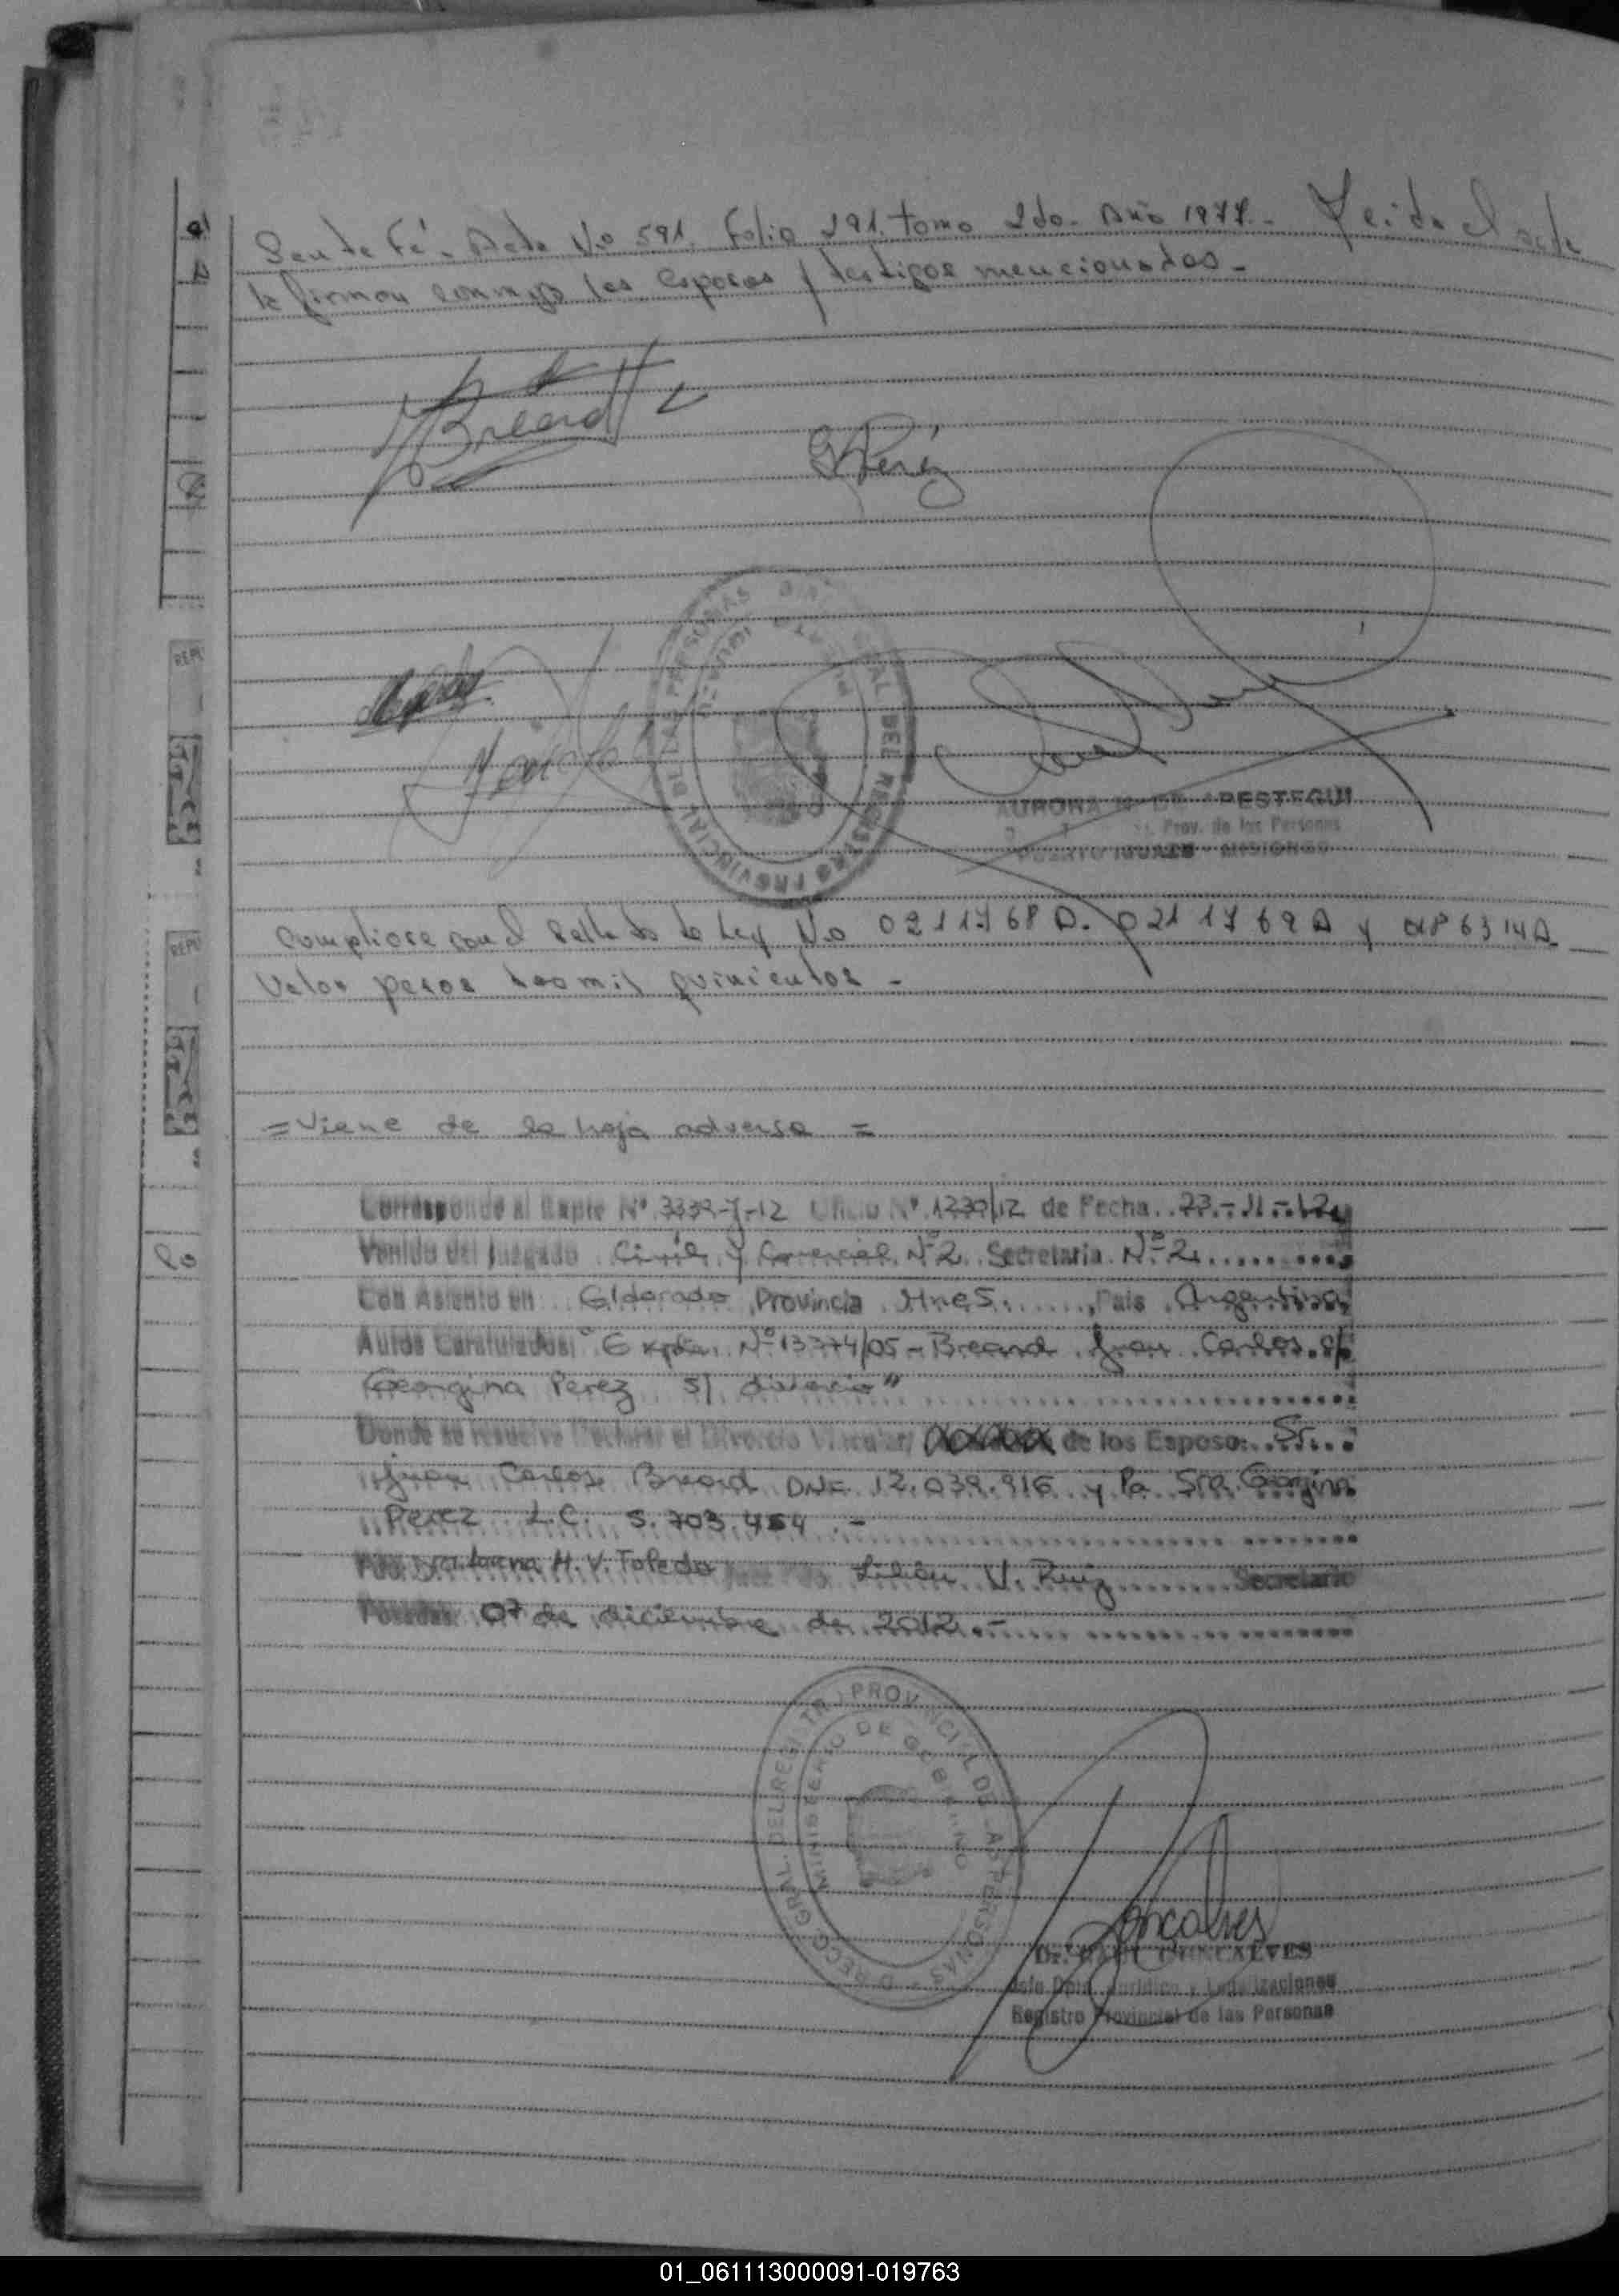 Santa Fé. Acta No 591. Folio 291. tomo 2do. Año 1977. Leida el acta
la firman conmigo los esposos y testigos mencionados -
Breard
GPeréz
AURORA M. DE APESTEGUI
Prov. de las Personas
PUERTO IGUAZU - MISIONES
Cumpliose con el sellado de Ley No 0211768A. 0211769A y 6314A
Valor pesos dos mil quinientos -
= Viene de la hoja adversa =
Corresponde al Expte Nº 3339-J-12 Oficio Nº 1230/12 de Fecha 23-11-12 y
Venido del Juzgado Civil y Comercial Nº 2 Secretaria Nº 2
Con Asiento en Eldorado Provincia Mnes País Argentina
Autos Caratulados: "Expte. Nº 13374/05 - Breard Juan Carlos c/
Georgina Perez s/ divorcio"
Donde se resuelve Declarar el Divorcio Vincular de los Esposos Sr.
Juan Carlos Breard DNI 12.039.916 y la Sra. Georgina
Perez L.C. 5.703.454 .-
Fdo. Dra. Lorena H. V. Toledo Juez Fdo. Lilian N. Ruiz Secretario
Posadas 07 de diciembre de 2012.-
DIRECC. GRAL. DEL REGISTRO PROVINCIAL DE LAS PERSONAS
MINISTERIO DE GOBIERNO
Goncalves
Dr. GONCALVES
Jefe Dpto. Jurídico y Legalizaciones
Registro Provincial de las Personas
01_061113000091-019763